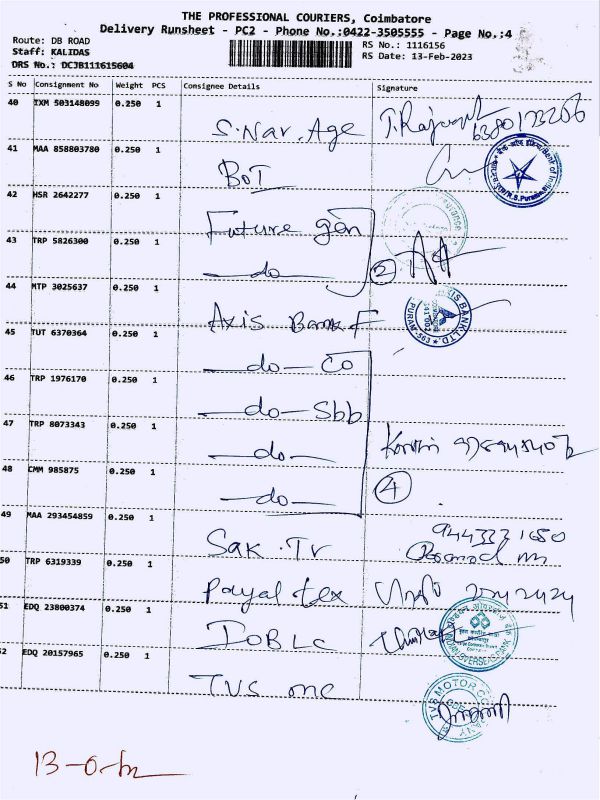 THE PROFESSIONAL COURIERS, Coimbatore
Delivery Runsheet - PC2 - Phone No.:0422-3505555 - Page No.:4
Route: DB ROAD
Staff: KALIDAS
DRS No.: DCJB111615604
RS No.: 1116156
RS Date: 13-Feb-2023
S No Consignment No Weight PCS Consignee Details Signature
40 IXM 503148099 0.250 1 S. Nav. Age
41 MAA 858803780 0.250 1 BOI
42 HSR 2642277 0.250 1 Future gen
43 TRP 5826300 0.250 1 —do— 2
44 MTP 3025637 0.250 1 Axis Bank F
45 TUT 6370364 0.250 1 —do— CO
46 TRP 1976170 0.250 1 —do— Sbb
47 TRP 8073343 0.250 1 —do—
48 CMM 985875 0.250 1 —do— 4
49 MAA 293454859 0.250 1 Sak. Tr
50 TRP 6319339 0.250 1 Payal tex
51 EDQ 23800374 0.250 1 IOB LC
52 EDQ 20157965 0.250 1 TVS one